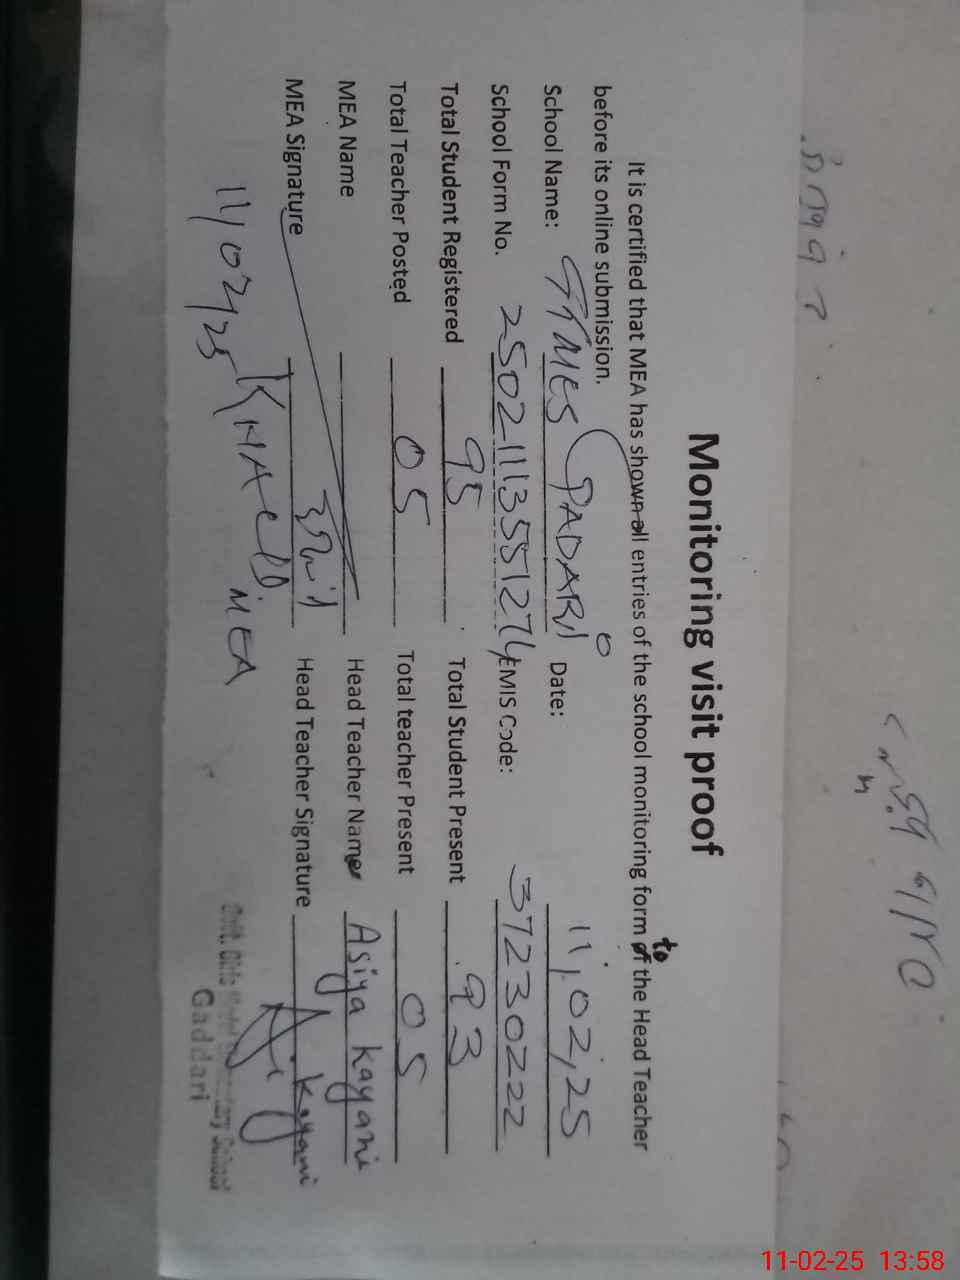 Monitoring visit proof
It is certified that MEA has shown all entries of the school monitoring form to the Head Teacher
before its online submission.
School Name: GGMES GADARI Date: 11,02,25
School Form No. EMIS Code: 37230222
Total Student Registered 95 Total Student Present 93
Total Teacher Posted 05 Total teacher Present 05
MEA Name Head Teacher Name Asiya Kayani
MEA Signature Head Teacher Signature Kayani
11/02/25 MEA
Govt. Girls School
Gaddari
11-02-25 13:58